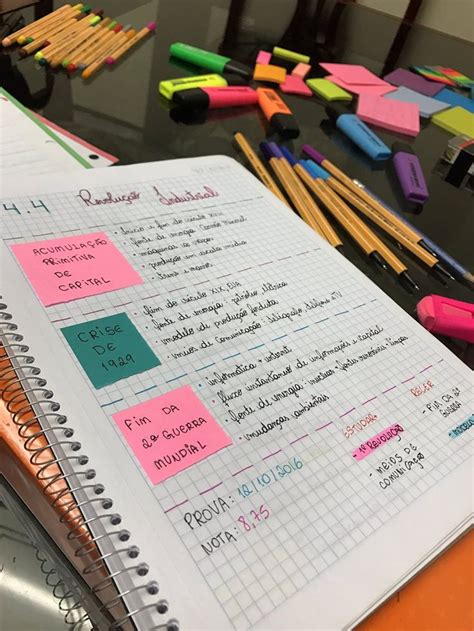 4.4 Revolução Industrial
ACUMULAÇÃO
PRIMITIVA
DE
CAPITAL
• início e fim do século XVIII
• fonte de energia: carvão mineral
• máquinas a vapor
• produção em escala
• trens e navios
CRISE
DE
1929
• fim do século XIX, EUA
• fonte de energia: petróleo, elétrica
• modelo de produção fordista
• meios de comunicação: telégrafo, telefone e TV
FIM DA
2º GUERRA
MUNDIAL
• informática e internet
• fluxo instantâneo de informações e capital
• fonte de energia: nuclear, fontes renováveis, limpas
• mudanças ambientais
PROVA: 12/10/2016
NOTA: 8,75
ESTUDAR
- 1ª REVOLUÇÃO
- MEIOS DE
COMUNICAÇÃO
RELER
- FIM DA 2ª
GUERRA